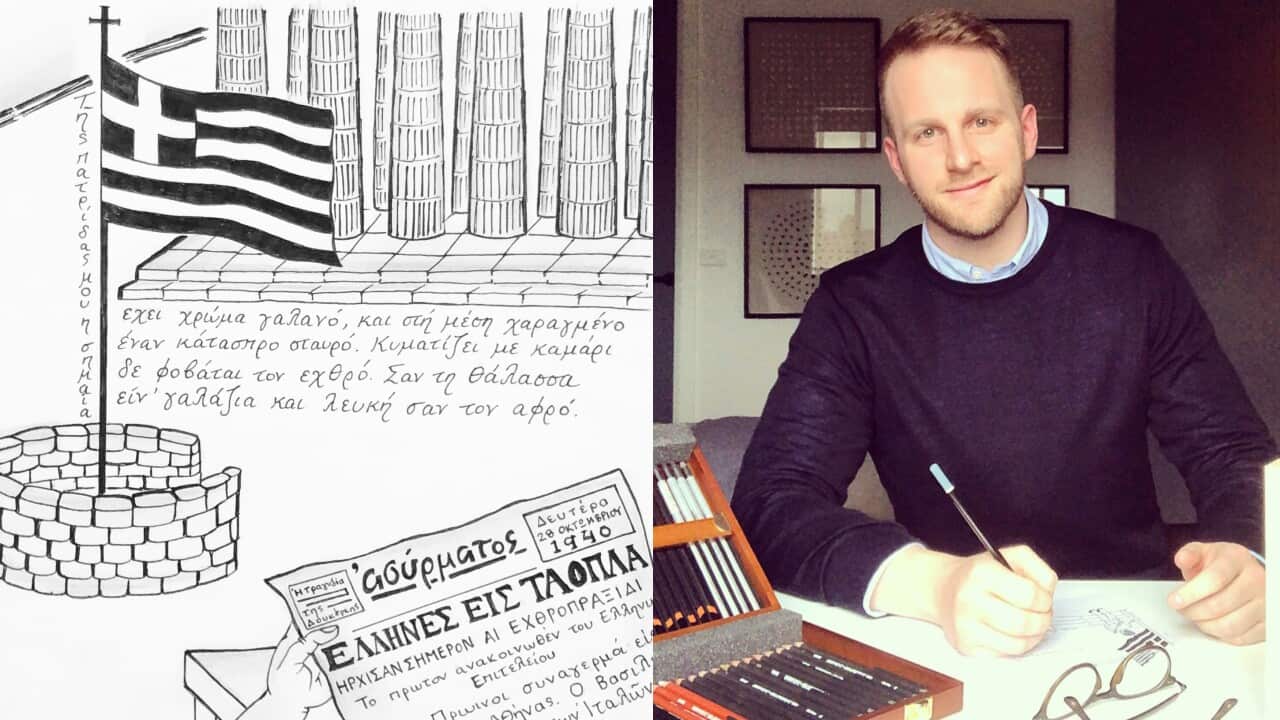 Της πατρίδας μου η σημαία
έχει χρώμα γαλανό, και στή μέση χαραγμένο
έναν κάτασπρο σταυρό. Κυματίζει με καμάρι
δε φοβάται τον εχθρό. Σαν τη θάλασσα
είν' γαλάζια και λευκή σαν τον αφρό.
Δευτέρα
28 ΟΚΤΩΒΡΙΟΥ
1940
'ασύρματος
Η τραγωδία
της
Δουκίσσης
ΕΛΛΗΝΕΣ ΕΙΣ ΤΑ ΟΠΛΑ
ΗΡΧΙΣΑΝ ΣΗΜΕΡΟΝ ΑΙ ΕΧΘΡΟΠΡΑΞΙΔΙ
Το πρωτον ανακοινωθεν του Ελληνικ
Επιτελείου
Πρωινοι συναγερμά είς
Αθήνας. Ο βασιλ
των Ιταλών